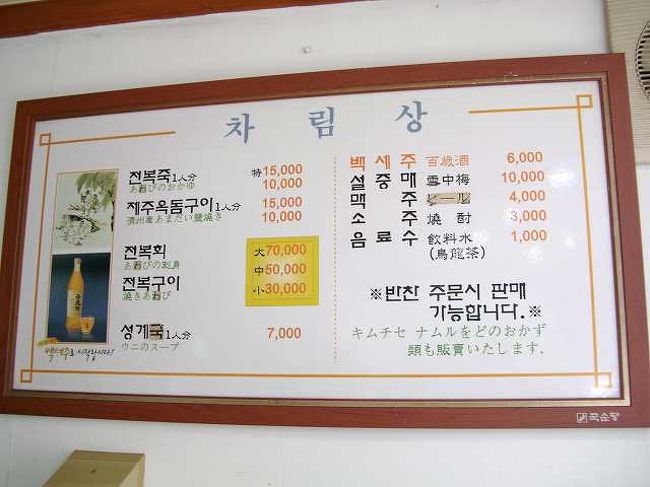 차림상
전복죽 1人分 特 15,000
あわびのおかゆ 10,000
제주옥돔구이 1人分 15,000
濟州産あまだい鹽燒き 10,000
전복회 大 70,000
あわびの刺身
中 50,000
전복구이
燒きあわび 小 30,000
성게국 1人分 7,000
ウニのスープ
백세주 百歲酒 6,000
설중매 雪中梅 10,000
맥주 ビール 4,000
소주 燒酎 3,000
음료수 飮料水 1,000
(烏龍茶)
※반찬 주문시 판매
가능합니다.※
キムチセ ナムルをどのおかず
類も販賣いたします。
국순당